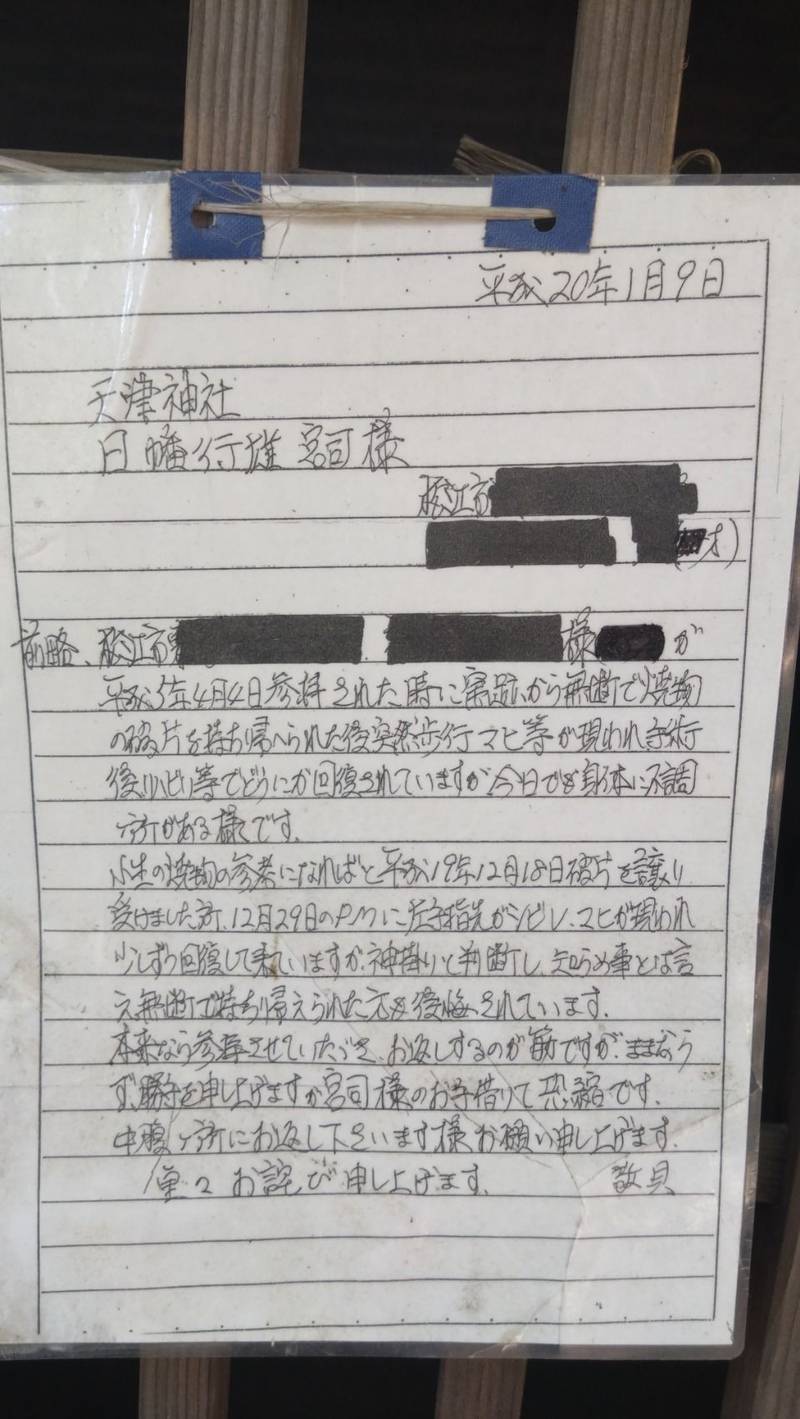 平成20年1月9日
天津神社
日幡行雄宮司様
松江市
才)
前略、松江市東 様 が
平成5年4月4日参拝された時に窯跡から無断で焼物
の破片を持ち帰へられた後突然歩行マヒ等が現われ手術
後リハビリ等でどうにか回復されていますが今日でも身体に不調
ヶ所がある様です。
小生の焼物の参考になればと平成19年12月18日破片を譲り
受けました所、12月29日のPMに左手指先がシビレ、マヒが現われ
少しずつ回復して来ていますが、神掛りと判断し、知らぬ事とは言
え無断で持ち帰えられた元も後悔されています。
本来なら参拝させていただき、お返しするのが筋ですが、ままなら
ず、勝手を申し上げますが宮司様のお手借りて恐縮です。
中腹ヶ所にお返し下さいます様お願い申し上げます。
重々お詫び申し上げます。 敬具